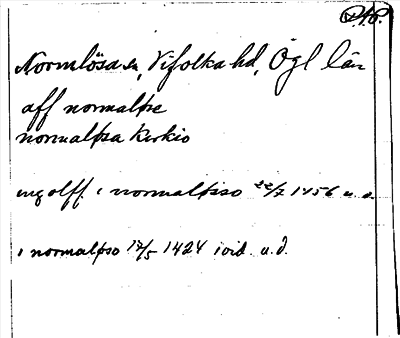 Normlösa sn, Vifolka hd, Ögl län
aff normaløse
normaløsa kirkio
ingolff i normaløso 22/7 1456 u. d.
i normaløso 17/5 1424 u.d.